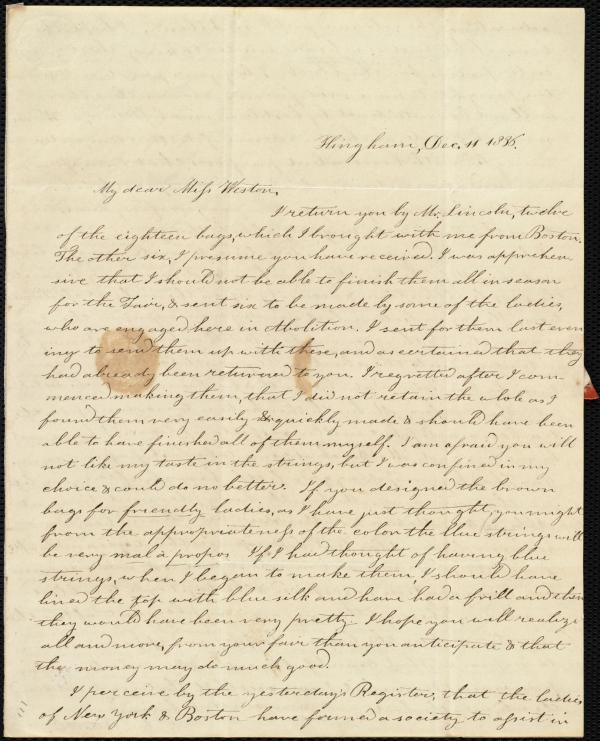 Hingham, Dec. 11 1836.
My dear Miss Weston,
I return you by Mr. Lincoln, twelve
of the eighteen bags, which I brought with me from Boston.
The other six, I presume you have received. I was apprehen
sive that I should not be able to finish them all in season
for the Fair, & sent six to be made by some of the ladies,
who are engaged here in Abolition. I sent for them last even
ing to send them up with these, and ascertained that they
had already been returned to you. I regretted after I com
menced making them, that I did not retain the whole as I
found them very easily & quickly made & should have been
able to have finished all of them myself. I am afraid you will
not like my taste in the strings, but I was confined in my
choice & could do no better. If you designed the brown
bags for friendly ladies, as I have just thought, you might
from the appropriateness of the color the blue strings will
be very mal à propos. If I had thought of having blue
strings, when I began to make them, I should have
lined the top with blue silk and have had a frill and then
they would have been very pretty. I hope you will realize
all and more, from your fair than you anticipate & that
the money may do much good.
I perceive by the yesterday's Register, that the ladies
of New York & Boston have formed a society to assist in